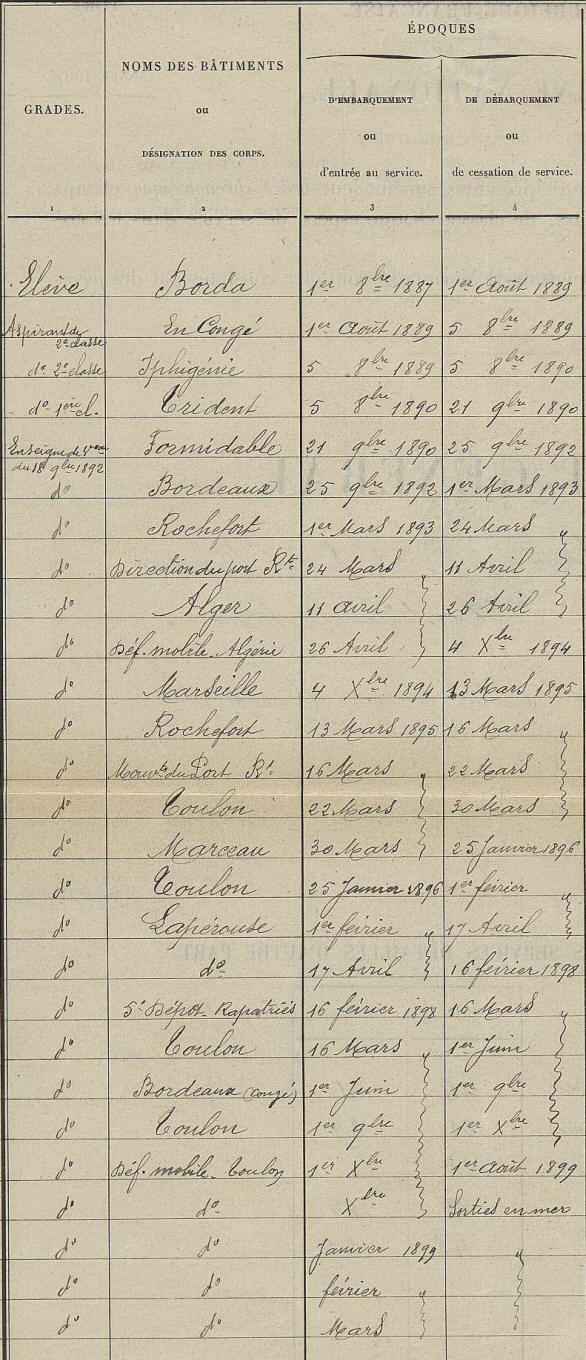 ÉPOQUES
GRADES.
NOMS DES BÂTIMENTS
ou
DÉSIGNATION DES CORPS.
D'EMBARQUEMENT
ou
d'entrée au service.
DE DÉBARQUEMENT
ou
de cessation de service.
1 2 3 4
Elève Borda 1er 8bre 1887 1er Août 1889
Aspirant de
2e classe En Congé 1er Août 1889 5 8bre 1889
do 2e classe Iphigénie 5 8bre 1889 5 8bre 1890
do 1ère cl. Trident 5 8bre 1890 21 9bre 1890
Enseigne de Veau
du 18 9bre 1892 Formidable 21 9bre 1890 25 9bre 1892
do Bordeaux 25 9bre 1892 1er Mars 1893
do Rochefort 1er Mars 1893 24 Mars "
do Direction du port Rt. 24 Mars " 11 Avril
do Alger 11 avril 26 Avril
do Déf. mobile. Algérie 26 Avril 4 Xbre 1894
do Marseille 4 Xbre 1894 13 Mars 1895
do Rochefort 13 Mars 1895 16 Mars "
do Mouvts du Port Rt. 16 Mars " 22 Mars
do Toulon 22 Mars 30 Mars
do Marceau 30 Mars 25 Janvier 1896
do Toulon 25 Janvier 1896 1er février "
do Lapérouse 1er février " 17 Avril
do do 17 Avril 16 février 1898
do 5e Dépôt Rapatriés 16 février 1898 16 Mars "
do Toulon 16 Mars " 1er Juin
do Bordeaux (congé) 1er Juin 1er 9bre
do Toulon 1er 9bre 1er Xbre
do Déf. mobile. Toulon 1er Xbre 1er Août 1899
do do Xbre Sorties en mer
do do Janvier 1899 "
do do février "
do do Mars